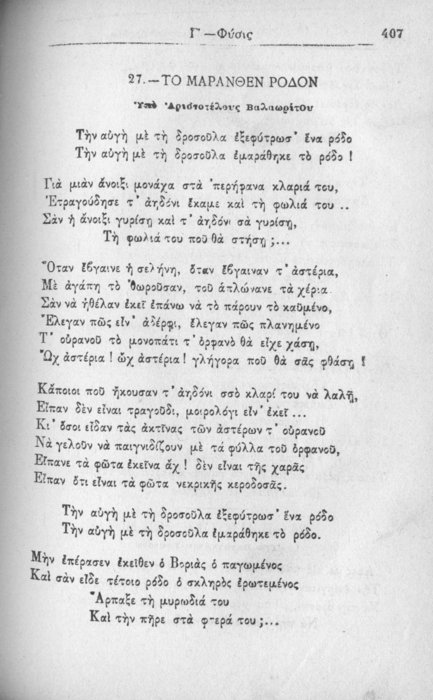 Γ' —Φύσις 407
27.—ΤΟ ΜΑΡΑΝΘΕΝ ΡΟΔΟΝ
Ὑπὸ Ἀριστοτέλους Βαλαωρίτου
Τὴν αὐγὴ μὲ τὴ δροσοῦλα ἐξεφύτρωσ' ἕνα ῥόδο
Τὴν αὐγὴ μὲ τὴ δροσοῦλα ἐμαράθηκε τὸ ῥόδο !
Γιὰ μιὰν ἄνοιξι μονάχα στὰ 'περήφανα κλαριά του,
Ἐτραγούδησε τ' ἀηδόνι ἔκαμε καὶ τὴ φωλιά του ..
Σὰν ἡ ἄνοιξι γυρίσῃ καὶ τ' ἀηδόνι σὰ γυρίσῃ,
Τὴ φωλιά του ποῦ θὰ στήσῃ ;...
Ὅταν ἔβγαινε ἡ σελήνη, ὅταν ἔβγαιναν τ' ἀστέρια,
Μὲ ἀγάπη τὸ 'θωροῦσαν, τοῦ ἁπλώνανε τὰ χέρια.
Σὰν νὰ ἤθελαν ἐκεῖ ἐπάνω νὰ τὸ πάρουν τὸ καϋμένο,
Ἔλεγαν πῶς εἶν' ἀδέρφι, ἔλεγαν πῶς πλανημένο
Τ' οὐρανοῦ τὸ μονοπάτι τ' ὀρφανὸ θὰ εἶχε χάσῃ,
Ὤχ ἀστέρια ! ὤχ ἀστέρια ! γλήγορα ποῦ θὰ σᾶς φθάσῃ !
Κάποιοι ποῦ ἤκουσαν τ' ἀηδόνι σσὸ κλαρί του νὰ λαλῇ,
Εἶπαν δὲν εἶναι τραγοῦδι, μοιρολόγι εἶν' ἐκεῖ ...
Κι' ὅσοι εἶδαν τὰς ἀκτῖνας τῶν ἀστέρων τ' οὐρανοῦ
Νὰ γελοῦν νὰ παιγνιδίζουν μὲ τὰ φύλλα τοῦ ὀρφανοῦ,
Εἴπανε τὰ φῶτα ἐκεῖνα ἄχ ! δὲν εἶναι τῆς χαρᾶς
Εἶπαν ὅτι εἶναι τὰ φῶτα νεκρικῆς κεροδοσᾶς.
Τὴν αὐγὴ μὲ τὴ δροσοῦλα ἐξεφύτρωσ' ἕνα ῥόδο
Τὴν αὐγὴ μὲ τὴ δροσοῦλα ἐμαράθηκε τὸ ῥόδο.
Μὴν ἐπέρασεν ἐκεῖθεν ὁ Βοριὰς ὁ παγωμένος
Καὶ σὰν εἶδε τέτοιο ῥόδο ὁ σκληρὸς ἐρωτεμένος
Ἅρπαξε τὴ μυρωδιά του
Καὶ τὴν πῆρε στὰ φτερά του ;...